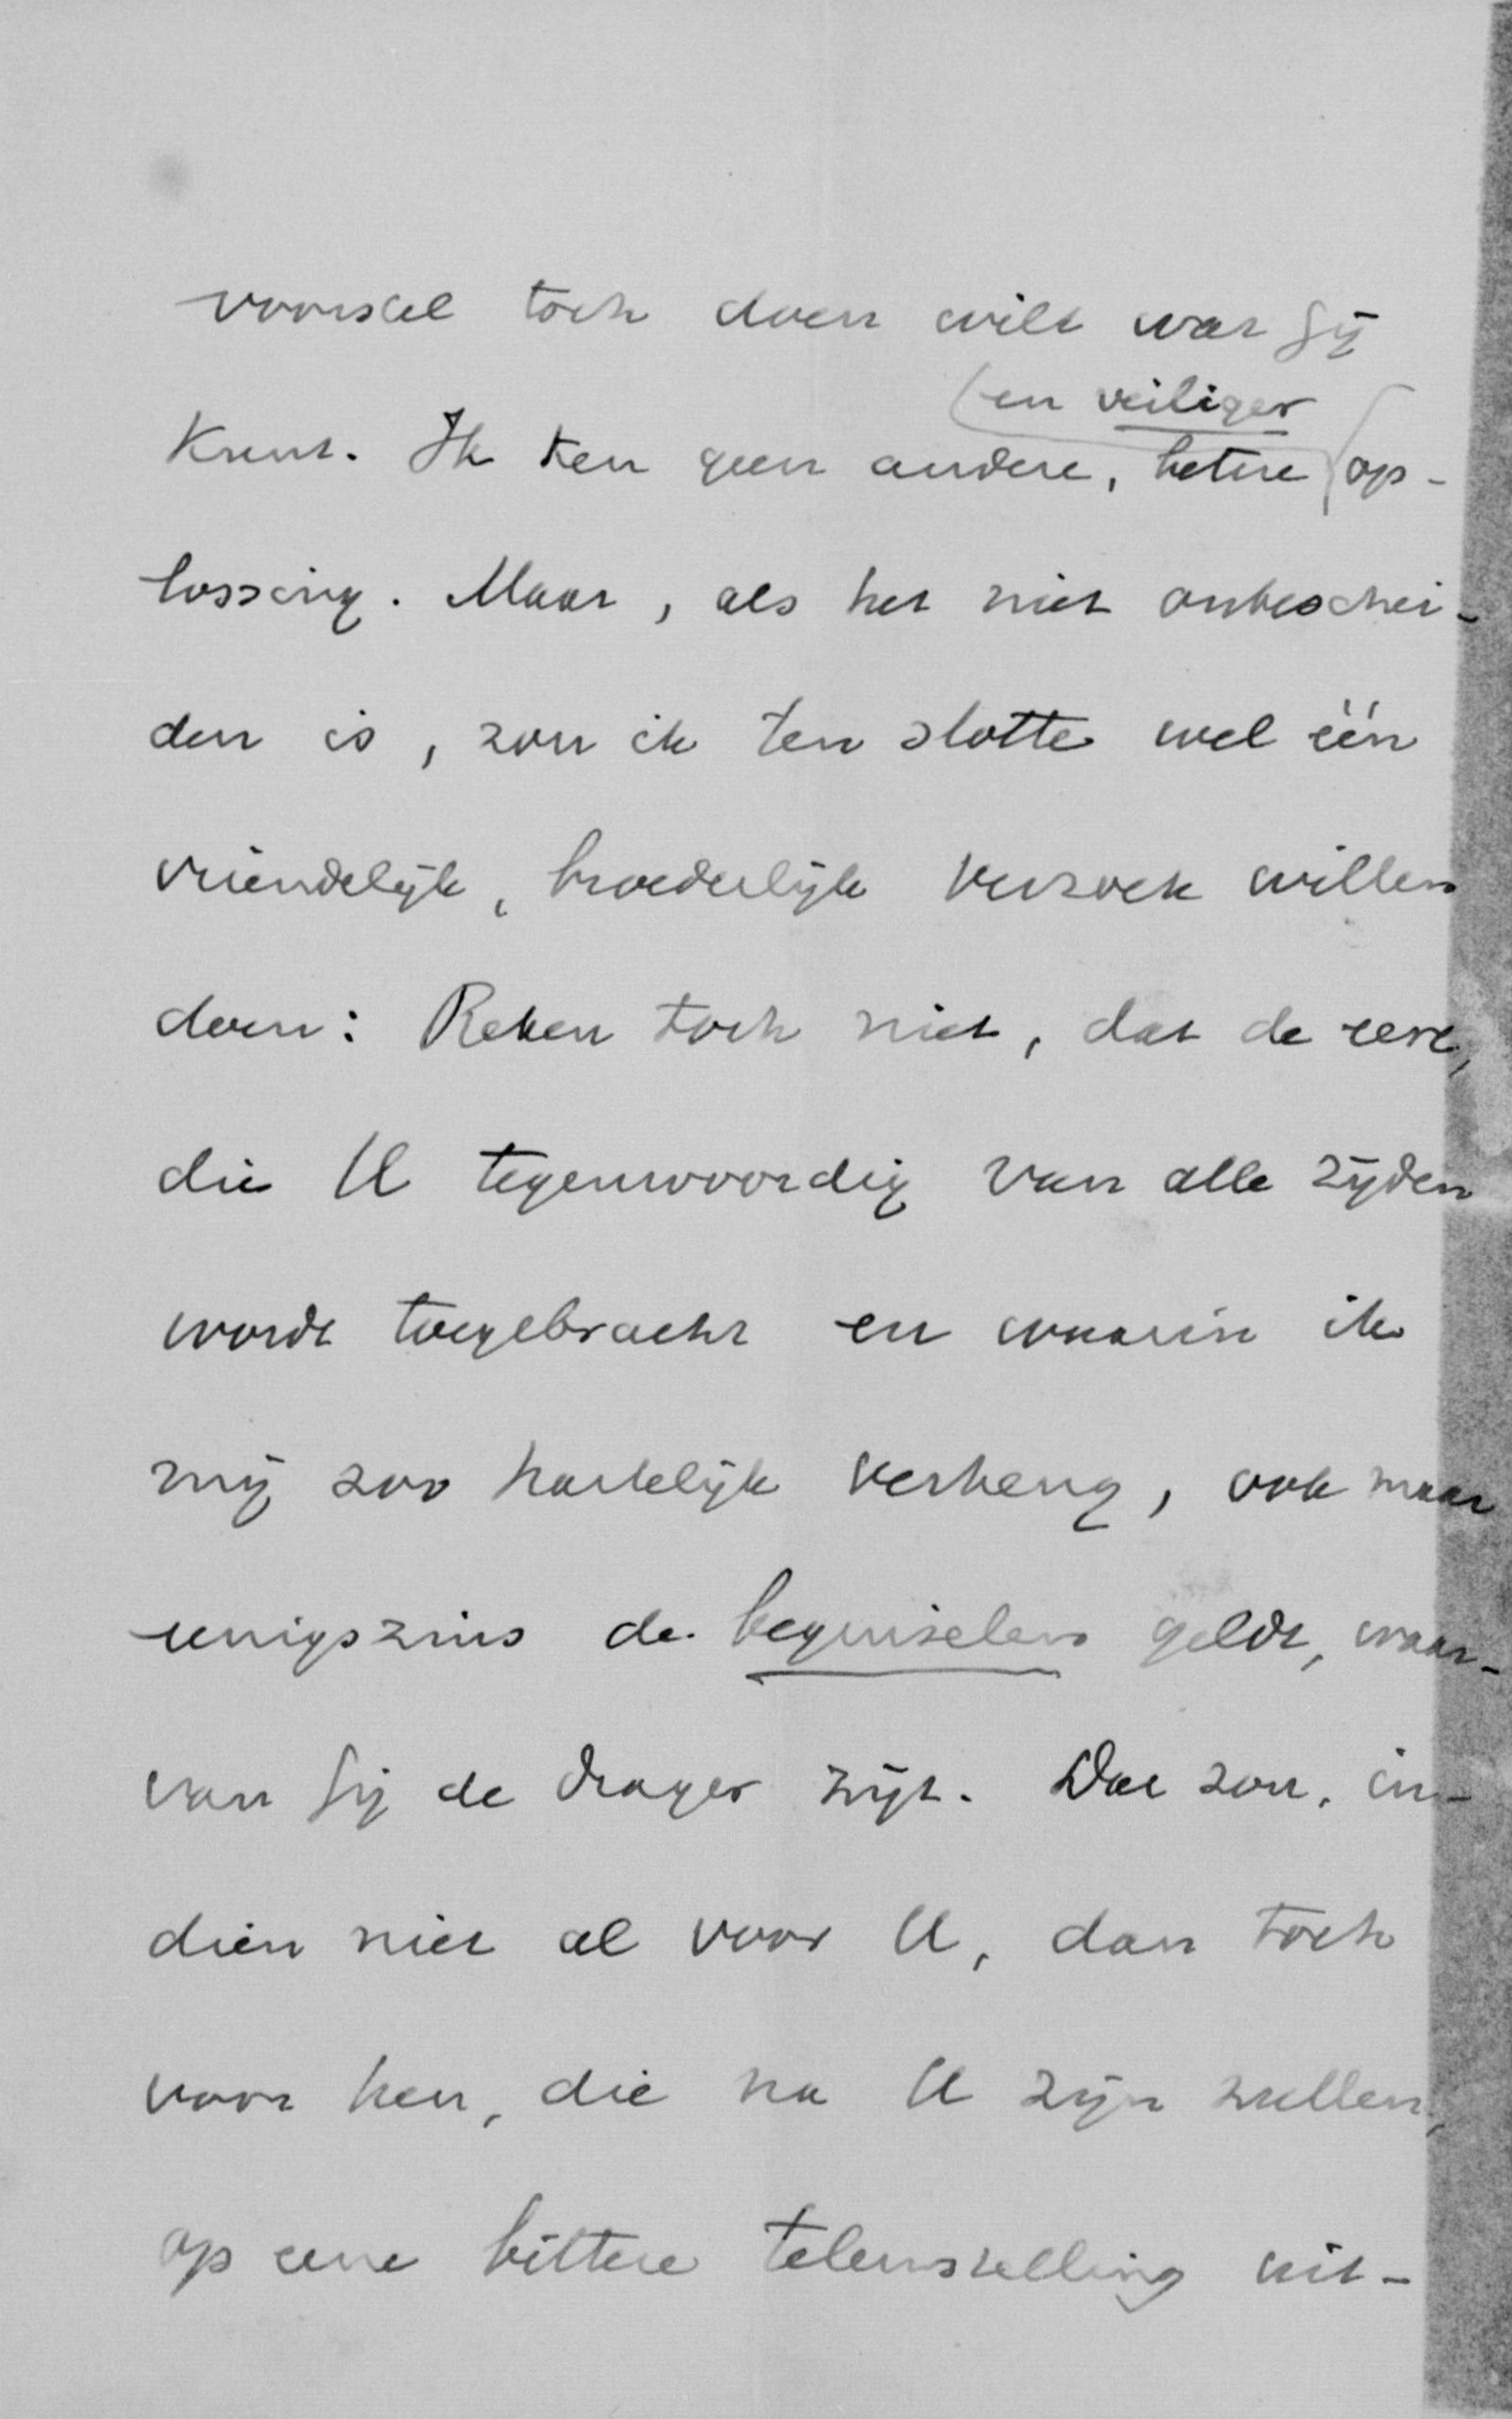 voorstel toch doen wilt wat Gij
(en veiliger
kunt. Ik ken geen andere, betere op-
lossing. Maar, als het niet onbeschei-
den is, zou ik ten slotte wel één
vriendelijk, broederlijk verzoek willen
doen: Reken toch niet, dat de eere,
die U tegenwoordig van alle zijden
wordt toegebracht en waarin ik
mij zoo hartelijk verheug, ook maar
eenigszins de beginselen geldt, waar-
van Gij de drager zijt. Dat zou, in-
dien niet al voor U, dan toch
voor hen, die na U zijn zullen,
op eene bittere teleurstelling uit-